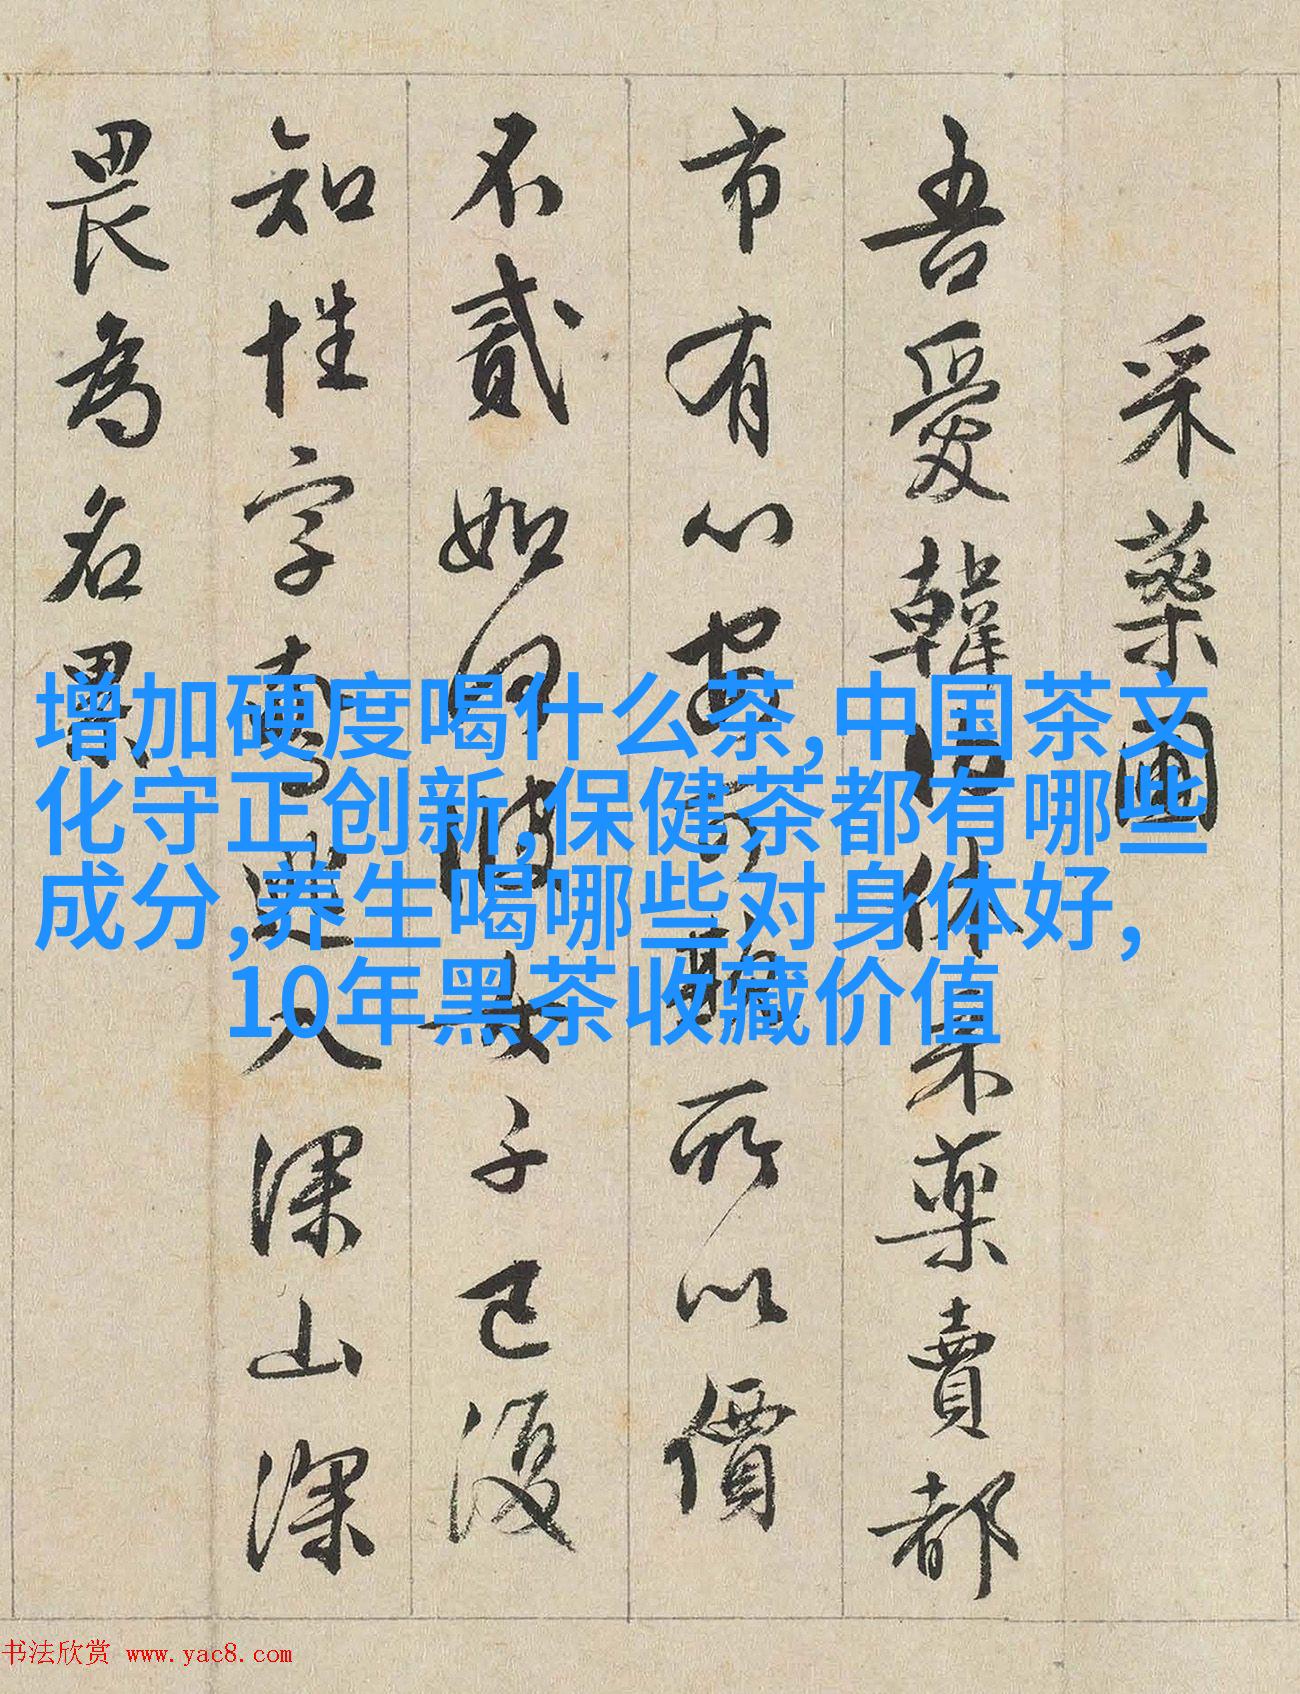 采藥圃
吾愛韓伯休采藥賣都
市有心安可欺所以價
不貳如何彼女子已復
知性字入深山深
畏為名累
增加硬度喝什么茶,中国茶文
化守正创新,保健茶都有哪些
成分,养生喝哪些对身体好,
10年黑茶收藏价值
书法欣赏 www.yac8.com